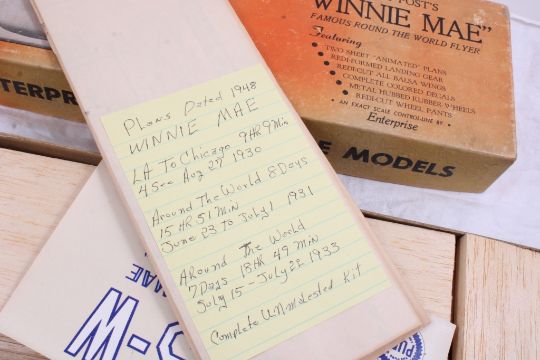 POST'S
"WINNIE MAE"
FAMOUS ROUND THE WORLD FLYER
Featuring
• TWO SHEET "ANIMATED" PLANS
• REDI-FORMED LANDING GEAR
• REDI-CUT ALL BALSA WINGS
• COMPLETE COLORED DECALS
• METAL HUBBED RUBBER WHEELS
• REDI-CUT WHEEL PANTS
• AN EXACT SCALE CONTROL-LINE BY •
Enterprise
TERPR
E MODELS
Plans Dated 1948
WINNIE MAE
LA To Chicago 9 HR 9 Min
4 Sec Aug 27 1930
Around The World 8 Days
15 HR 51 Min
June 23 To July 1 1931
Around The World
7 Days 18 HR 49 Min
July 15 - July 22 1933
Complete UN-molested Kit
MAE
W-